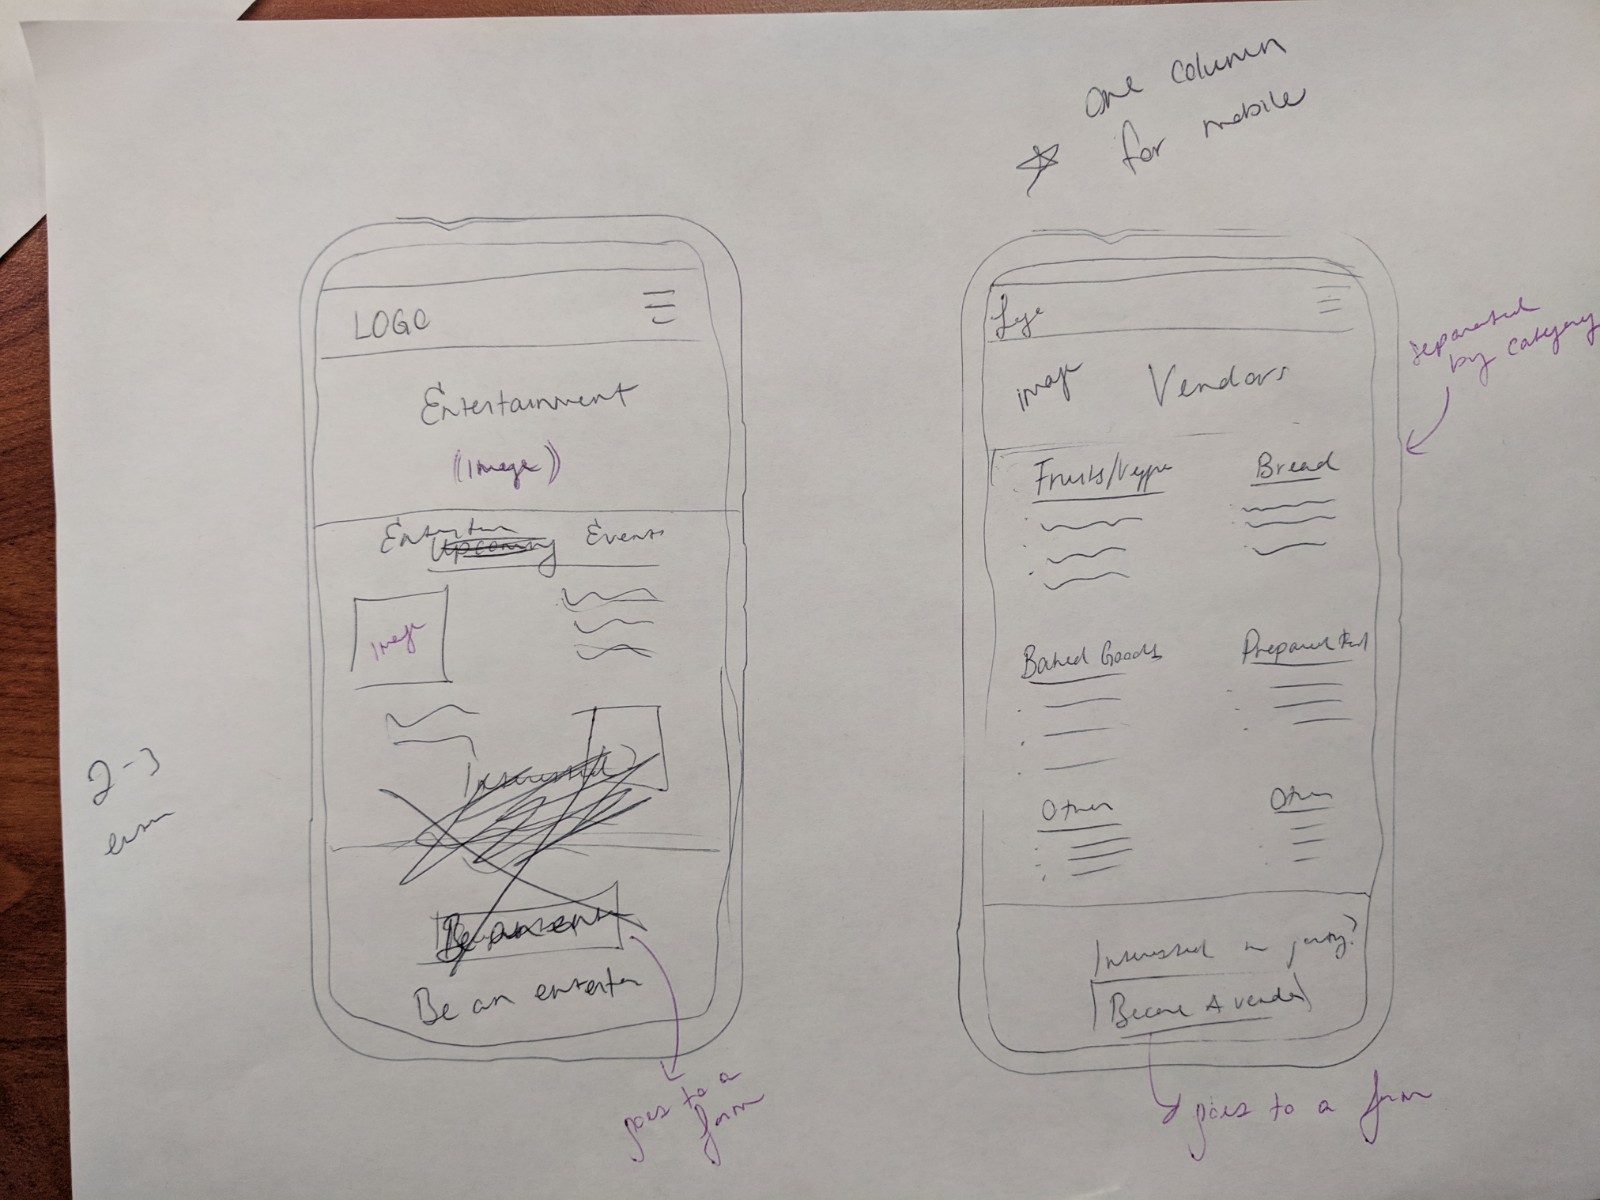 one column
for mobile
LOGO
Entertainment
((Image))
Upcoming Events
Image
Interested?
2-3
Be an
goes to a
form
Logo
image Vendors
separated
by category
Fruits/Veggie Bread
Baked Goods Prepared
Other Other
Interested in
Become A vendor
goes to a form